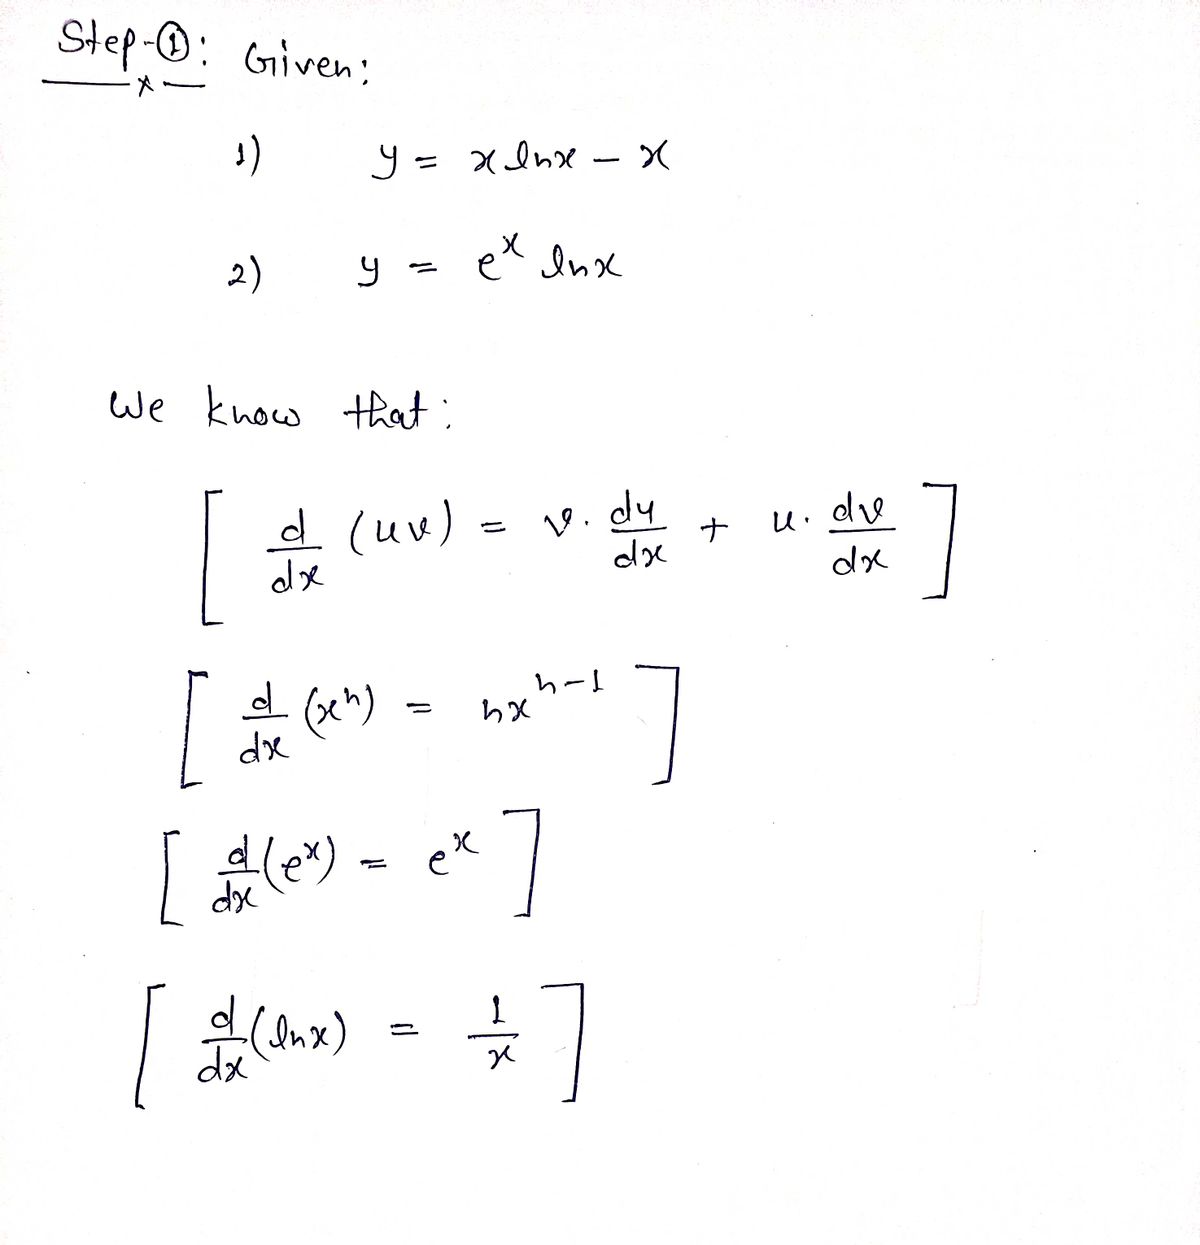 Step-①: Given:
1) y = x lnx − x
2) y = e^x lnx
We know that:
[ d/dx (uv) = v. du/dx + u. dv/dx ]
[ d/dx (x^n) = nx^n-1 ]
[ d/dx (e^x) = e^x ]
[ d/dx (lnx) = 1/x ]